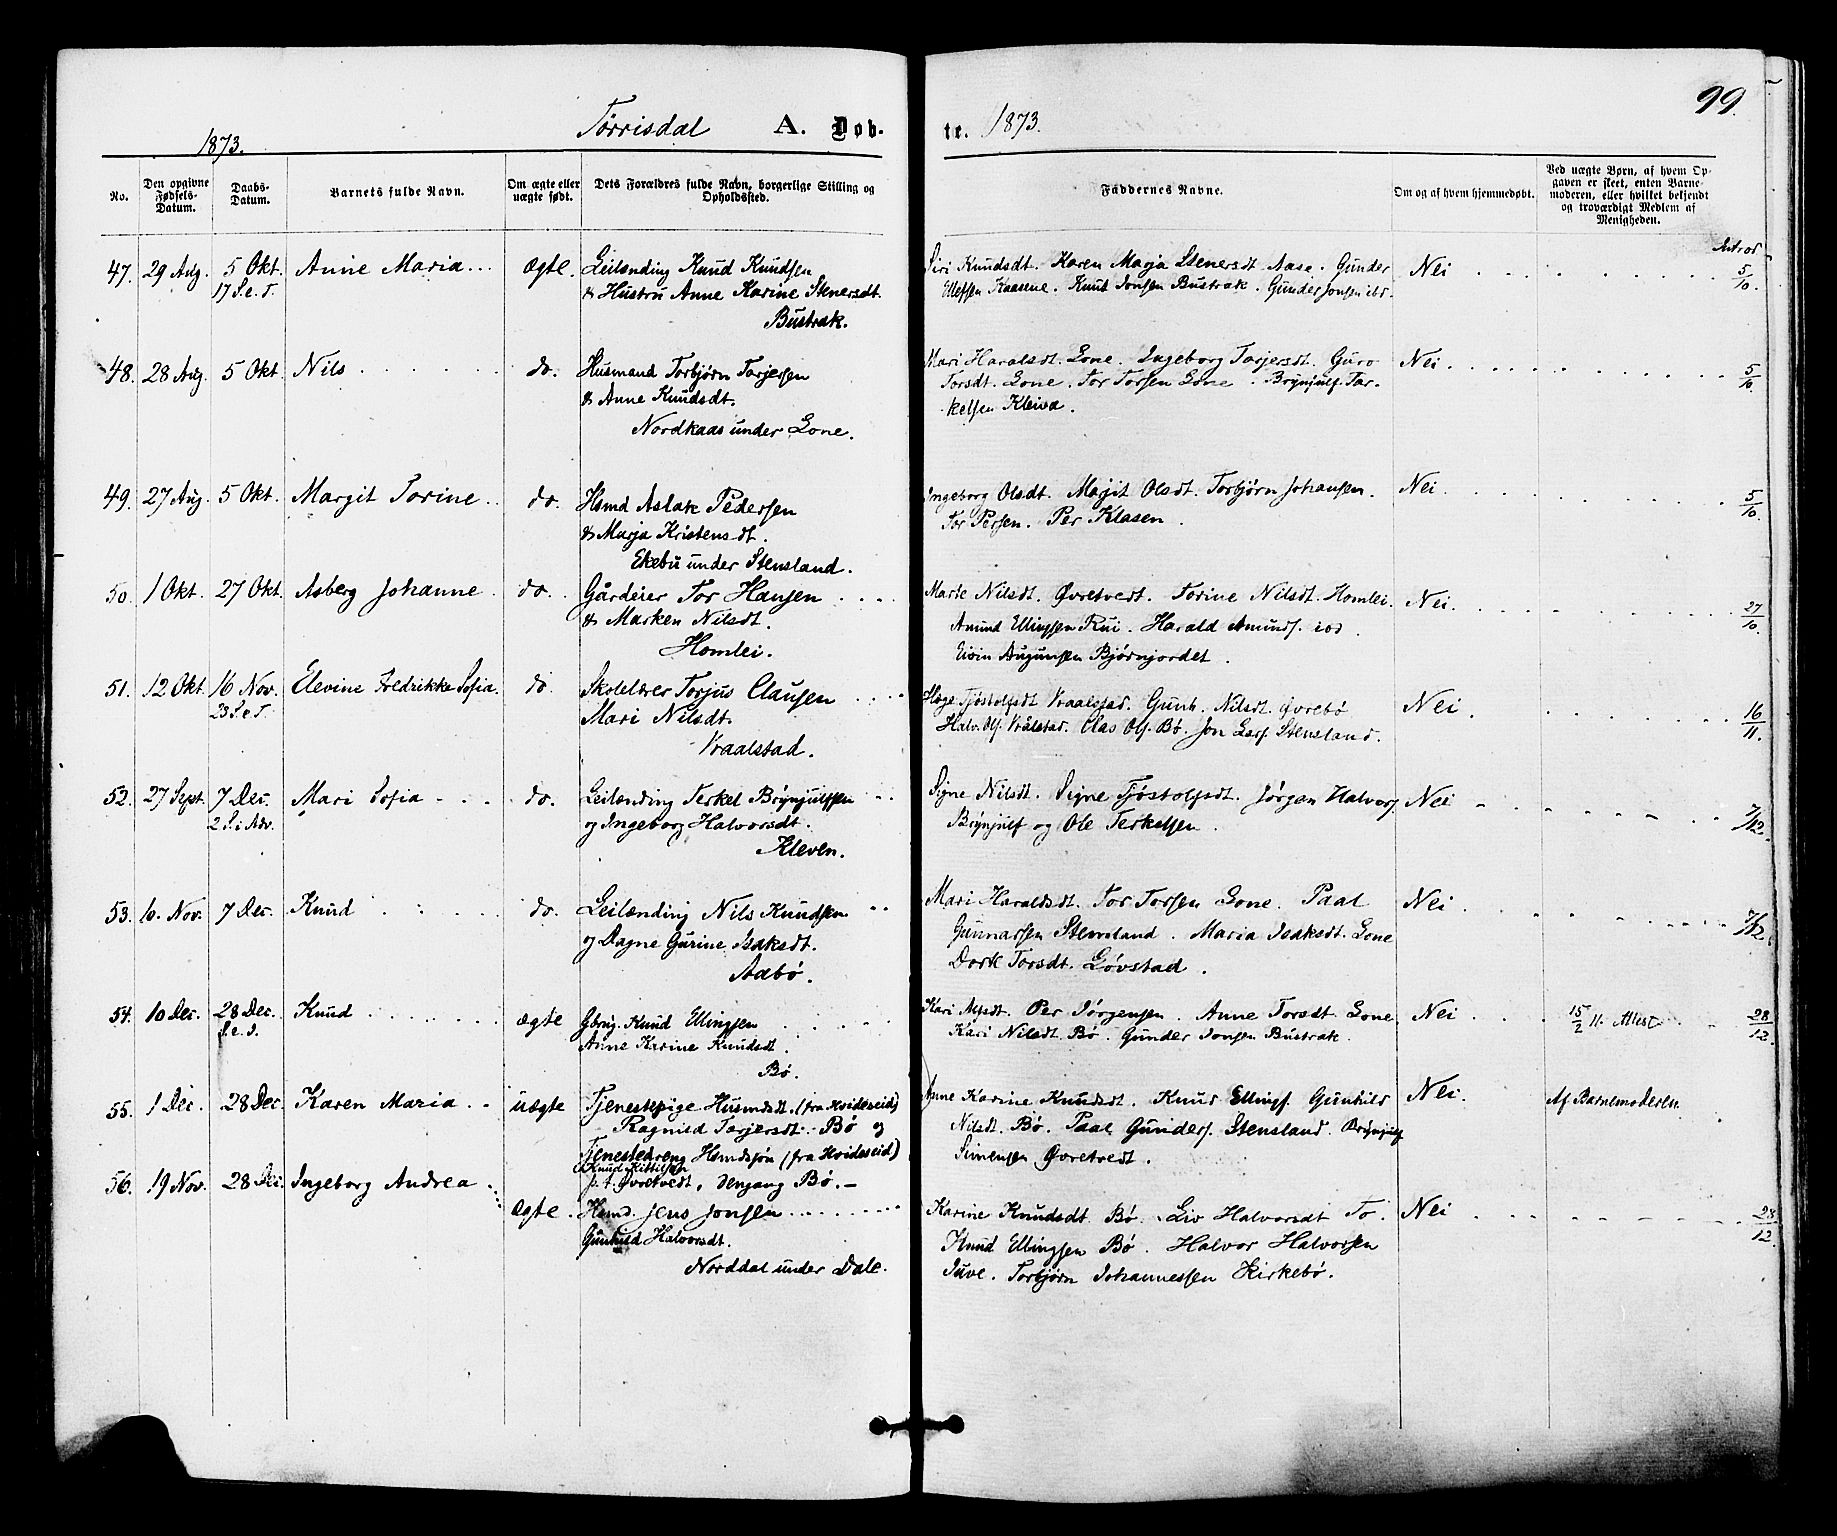 1873. Tørrisdal A. Døb-
te. 1873. 99.
No. Den opgivne Fødsels-Datum. Daabs-Datum. Barnets fulde Navn. Om ægte eller uægte født. Dets Forældres fulde Navn, borgerlige Stilling og Opholdssted.
Faddernes Navne. Om og af hvem hjemmedøbt. Ved uægte Børn, af hvem Opgaven er skeet, enten Barnemoderen, eller hvilket bekjendt og troværdigt Medlem af Menigheden.
47. 29 Aug. 5 Okt. Anne Maria ægte. Leilænding Knud Knudsen
17 S. e. T. & Hustru Anne Karine Stenersdt.
Bustrak.
Siri Knudsdt. Karen Marja Stenersdt. Aase. Gunder Nei
Ellefsen Kaasene. Knut Jonsen Bustrak. Gunder Jonsen ibd. 5/10.
48. 28 Aug. 5 Okt. Nils do. Husmand Torbjørn Tarjersen
& Anne Knudsdt.
Nordkaas under Lone.
Mari Haralsdt. Lone. Ingeborg Tarjersdt. Guro Nei
Torsdt. Lone. Tor Torsen Lone. Brynjulf Tar- 5/10
kelsen Kleiva.
49. 27 Aug. 5 Okt. Margit Torine do. Hsmd Aslak Pedersen
& Marja Kristensdt.
Ekebu under Stensland.
Ingeborg Olsdt. Marjit Olsdt. Torbjørn Johansen. Nei
Tor Persen. Per Klasen. 5/10.
50. 1 Okt. 27 Okt. Asberg Johanne do. Gårdeier Tor Hansen
& Marken Nilsdt.
Homlei.
Marte Nilsdt. Øvretvedt. Torine Nilsdt. Homlei. Nei.
Amund Ellingsen Rui. Harald Amunds. ibd. 27/10.
Eivin Augunsen Bjørnjordet.
51. 12 Okt. 16 Nov. Elevine Fredrikke Sofia. do. Skolelærer Torjus Clausen
23 S. e. T. Mari Nilsdt.
Vraalstad.
Hæge Tjøstolfsdt Vraalstad. Gunh. Nilsdt. Øvrebø Nei
Halv. Ols. Vrålstad. Clas Ols. Bø. Jon Lars. Stensland. 16/11.
52. 27 Sept. 7 Dec. Mari Sofia do. Leilænding Terkel Brynjulfsen
2 S i Adv. og Ingeborg Halvorsdt.
Kleven.
Signe Nilsdt. Signe Tjøstolfsdt. Jørgen Halvors. Nei
Brynjulf og Ole Terkelsen. 7/12.
53. 6. Nov. 7 Dec. Knud do. Leilænding Nils Knudsen
og Dagne Gurine Isaksdt.
Aabø.
Mari Haraldsdt. Tor Torsen Lone. Paal Nei
Gunnarsen Stensland. Maria Isaksdt. Lone 7/12
Dork Torsdt. Løvstad.
54. 10 Dec. 28 Dec. Knud ægte Gbrug. Knud Ellingsen
S. e. J. Anne Karine Knudsdt.
Bø.
Kari Alfsdt. Per Jørgensen. Anne Torsdt Lone. Nei 15/2 11. Attest 28/12.
Kari Nilsdt. Bø. Gunder Jonsen Bustrak.
55. 1 Dec. 28 Dec. Karen Maria uægte Tjenestepige Husmdsdt. (fra Hvideseid)
Ragnild Tarjersdt. Bø og
Tjenestedreng Hsmdsøn (fra Hvideseid)
Knud Kittilsen
p. t. Øvretvedt, dengang Bø.
Anne Karine Knudsdt. Knud Ellings. Gunhild Nei. Af Barnemoderen.
Nilsdt. Bø. Paal Gunders. Stensland. Brynjulf
Simensen Øvretvedt.
56. 19 Nov. 28 Dec. Ingeborg Andrea ægte. Hsmd. Jens Jonsen
Gunhild Halvorsdt.
Norddal under Dale.
Karine Knudsdt Bø. Liv Halvorsdt To. Nei 28/12.
Knud Ellingsen Bø. Halvor Halvorsen
Juve. Torbjørn Johannessen Kirkebø.